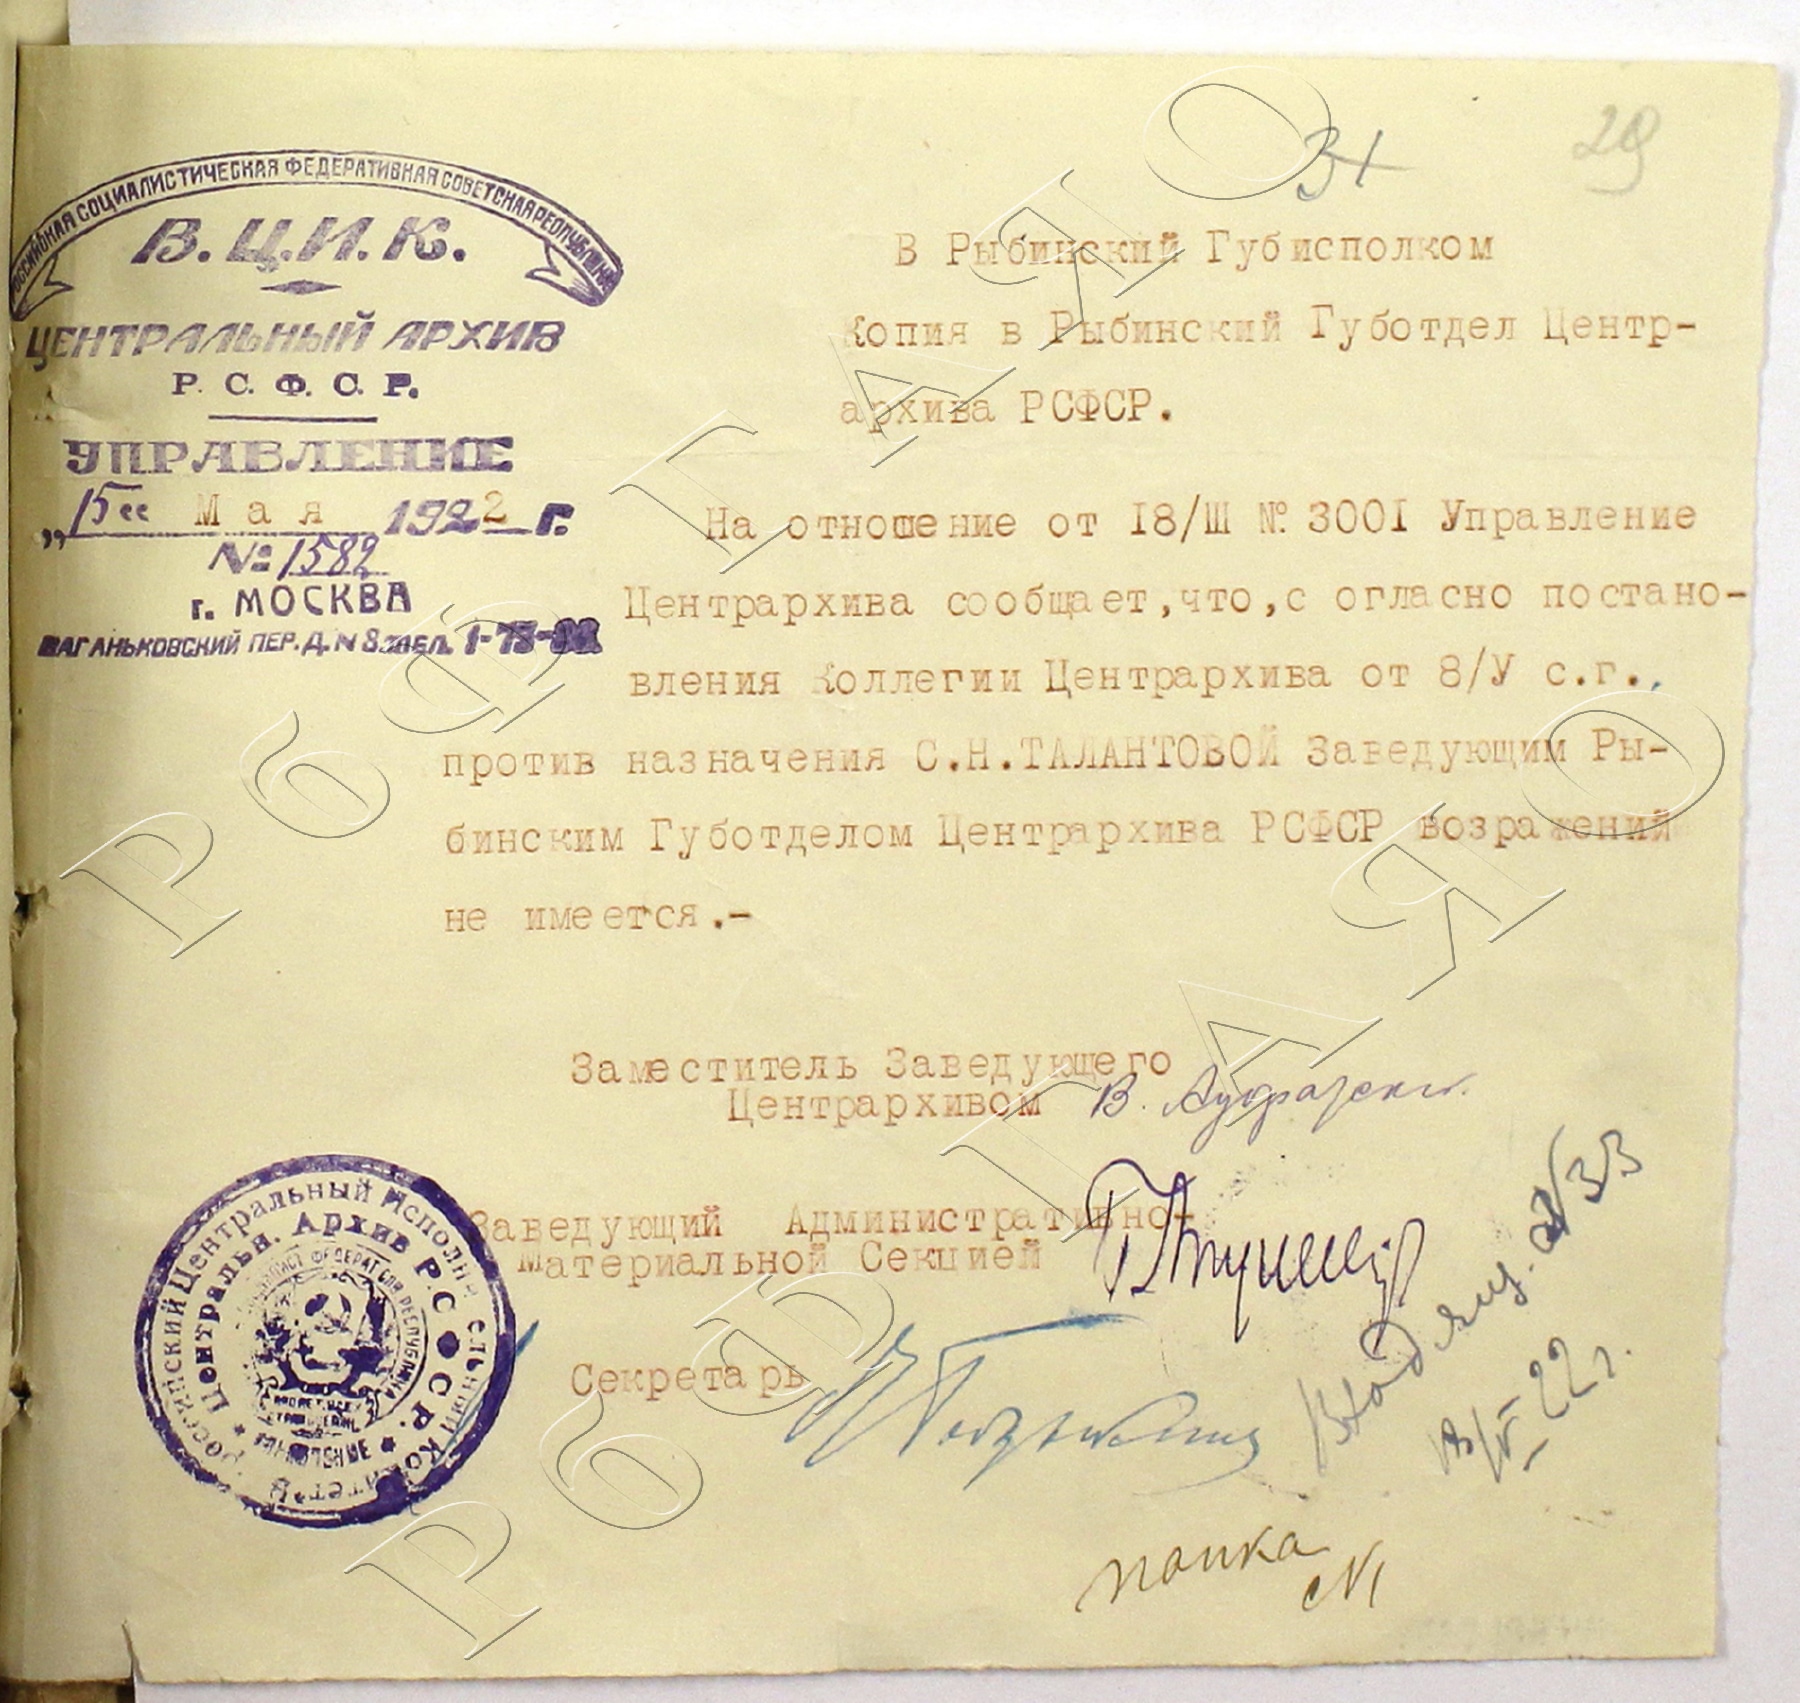 29
РОССИЙСКАЯ СОЦИАЛИСТИЧЕСКАЯ ФЕДЕРАТИВНАЯ СОВЕТСКАЯ РЕСПУБЛИКА
В.Ц.И.К.
ЦЕНТРАЛЬНЫЙ АРХИВ
Р. С. Ф. С. Р.
УПРАВЛЕНИЕ
„15" Мая 1922 г.
№ 1582
г. МОСКВА
ВАГАНЬКОВСКИЙ ПЕР. Д. N 8
В Рыбинский Губисполком
Копия в Рыбинский Губотдел Центр-
архива РСФСР.
На отношение от I8/Ш № 300I Управление
Центрархива сообщает,что,с огласно постано-
вления Коллегии Центрархива от 8/У с.г.,
против назначения С.Н.ТАЛАНТОВОЙ Заведующим Ры-
бинским Губотделом Центрархива РСФСР возражений
не имеется.-
Заместитель Заведующего
Центрархивом В.
Заведующий Административно-
Материальной Секцией
Секретарь
Российский Центральный Исполнительный Комитет
Центральн. Архив Р.С.Ф.С.Р.
УПРАВЛЕНИЕ
33
22 г.
папка
№ 1
РбФ ГАЯО
РбФ ГАЯО